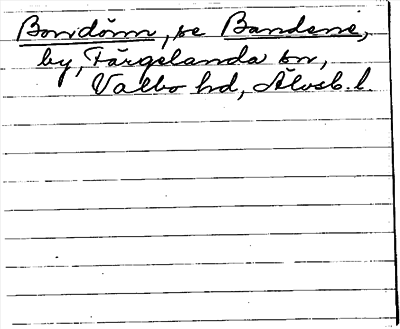 Bondöm, se Bandene,
by, Färgelanda sn,
Valbo hd, Älvsb. l.